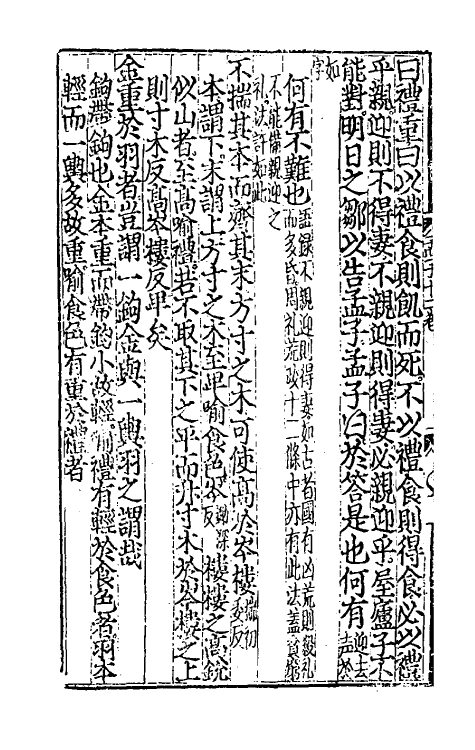 曰禮重曰以禮食則飢而死不以禮食則得食必以禮
乎親迎則不得妻不親迎則得妻必親迎乎屋廬子不
能對明日之鄒以告孟子孟子曰於答是也何有迎去聲於
如字
何有不難也孟錄不親迎則得妻如古者國有凶荒則殺礼
而多昏周礼荒政十二條中亦有此法蓋貧窮
不能備親迎之
礼法許如此
不揣其本而齊其末方寸之木可使高於岑樓揣初委反
本謂下末謂上方寸之木至卑喻食色岑鋤深反樓樓之高銳
似山者至高喻禮若不取其下之平而升寸木於岑樓之上
則寸木反高岑樓反卑矣
金重於羽者豈謂一鉤金與一輿羽之謂哉
鉤帶鉤也金本重而帶鉤小故輕喻禮有輕於食色者羽本
輕而一輿多故重喻食色有重於禮者